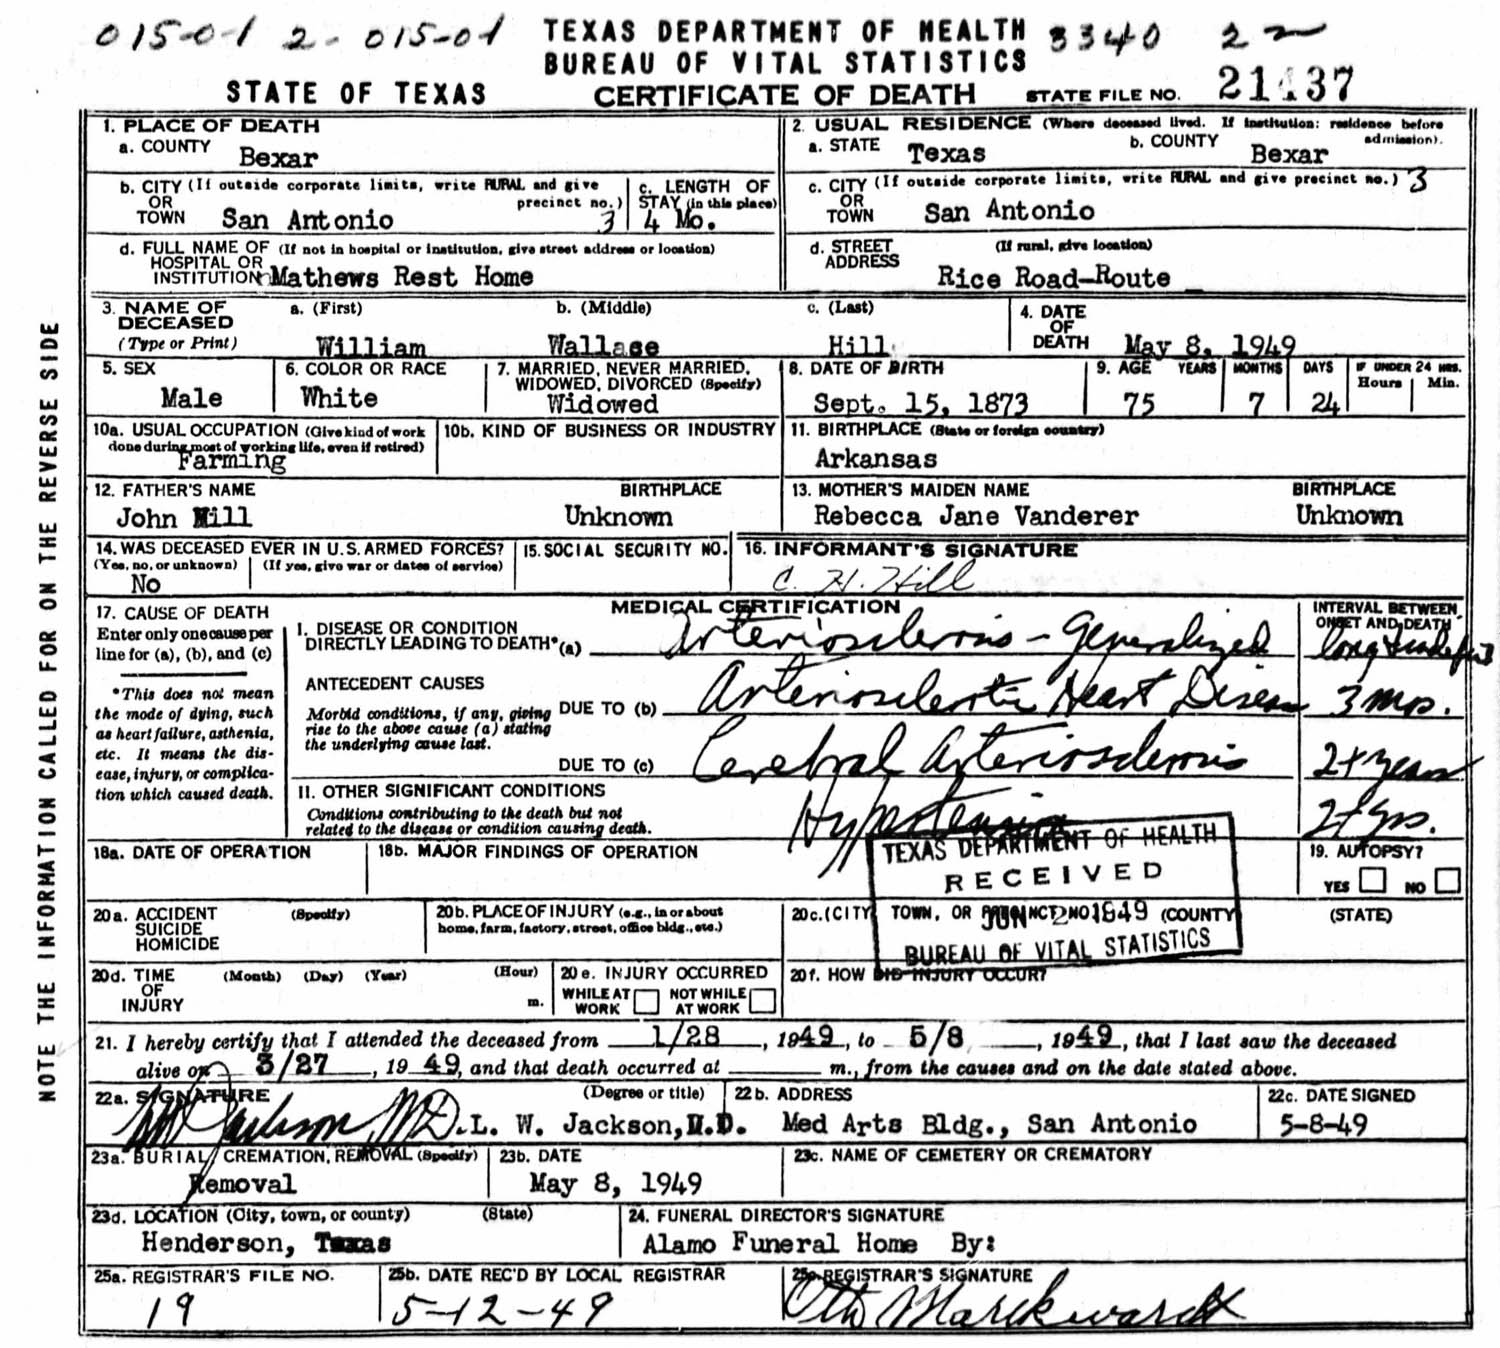 015-01 2-015-01 TEXAS DEPARTMENT OF HEALTH 3340 2
BUREAU OF VITAL STATISTICS
STATE OF TEXAS CERTIFICATE OF DEATH STATE FILE NO. 21437
NOTE THE INFORMATION CALLED FOR ON THE REVERSE SIDE
1. PLACE OF DEATH
a. COUNTY Bexar
2. USUAL RESIDENCE (Where deceased lived. If institution: residence before admission).
a. STATE Texas b. COUNTY Bexar
b. CITY (If outside corporate limits, write RURAL and give precinct no.)
OR
TOWN San Antonio 3
c. LENGTH OF
STAY (in this place)
4 Mo.
c. CITY (If outside corporate limits, write RURAL and give precinct no.) 3
OR
TOWN San Antonio
d. FULL NAME OF (If not in hospital or institution, give street address or location)
HOSPITAL OR
INSTITUTION Mathews Rest Home
d. STREET (If rural, give location)
ADDRESS
Rice Road-Route
3. NAME OF DECEASED (Type or Print)
a. (First) b. (Middle) c. (Last)
William Wallace Hill
4. DATE
OF
DEATH May 8, 1949
5. SEX
Male
6. COLOR OR RACE
White
7. MARRIED, NEVER MARRIED,
WIDOWED, DIVORCED (Specify)
Widowed
8. DATE OF BIRTH
Sept. 15, 1873
9. AGE YEARS MONTHS DAYS IF UNDER 24 HRS.
Hours Min.
75 7 24
10a. USUAL OCCUPATION (Give kind of work
done during most of working life, even if retired)
Farming
10b. KIND OF BUSINESS OR INDUSTRY
11. BIRTHPLACE (State or foreign country)
Arkansas
12. FATHER'S NAME BIRTHPLACE
John Hill Unknown
13. MOTHER'S MAIDEN NAME BIRTHPLACE
Rebecca Jane Vanderer Unknown
14. WAS DECEASED EVER IN U.S. ARMED FORCES?
(Yes, no, or unknown) (If yes, give war or dates of service)
No
15. SOCIAL SECURITY NO.
16. INFORMANT'S SIGNATURE
C. H. Hill
17. CAUSE OF DEATH
Enter only one cause per
line for (a), (b), and (c)
*This does not mean
the mode of dying, such
as heart failure, asthenia,
etc. It means the dis-
ease, injury, or complica-
tion which caused death.
MEDICAL CERTIFICATION
INTERVAL BETWEEN
ONSET AND DEATH
I. DISEASE OR CONDITION
DIRECTLY LEADING TO DEATH* (a) Arteriosclerosis - Generalized long
ANTECEDENT CAUSES
Morbid conditions, if any, giving
rise to the above cause (a) stating
the underlying cause last.
DUE TO (b) Arteriosclerotic Heart Disease 3 mos.
DUE TO (c) Cerebral Arteriosclerosis 2+ years
II. OTHER SIGNIFICANT CONDITIONS
Conditions contributing to the death but not
related to the disease or condition causing death.
2+ yrs.
18a. DATE OF OPERATION
18b. MAJOR FINDINGS OF OPERATION
19. AUTOPSY?
YES NO
TEXAS DEPARTMENT OF HEALTH
RECEIVED
JUN 2 1949
BUREAU OF VITAL STATISTICS
20a. ACCIDENT (Specify)
SUICIDE
HOMICIDE
20b. PLACE OF INJURY (e.g., in or about
home, farm, factory, street, office bldg., etc.)
20c. (CITY, TOWN, OR PRECINCT NO.) (COUNTY) (STATE)
20d. TIME (Month) (Day) (Year) (Hour)
OF
INJURY m.
20e. INJURY OCCURRED
WHILE AT WORK NOT WHILE AT WORK
20f. HOW DID INJURY OCCUR?
21. I hereby certify that I attended the deceased from 1/28, 1949, to 5/8, 1949, that I last saw the deceased
alive on 3/27, 1949, and that death occurred at m., from the causes and on the date stated above.
22a. SIGNATURE (Degree or title)
Jackson MD. L. W. Jackson, M.D.
22b. ADDRESS
Med Arts Bldg., San Antonio
22c. DATE SIGNED
5-8-49
23a. BURIAL, CREMATION, REMOVAL (Specify)
Removal
23b. DATE
May 8, 1949
23c. NAME OF CEMETERY OR CREMATORY
23d. LOCATION (City, town, or county) (State)
Henderson, Texas
24. FUNERAL DIRECTOR'S SIGNATURE
Alamo Funeral Home By:
25a. REGISTRAR'S FILE NO.
19
25b. DATE REC'D BY LOCAL REGISTRAR
5-12-49
25c. REGISTRAR'S SIGNATURE
Otto Marckwardt